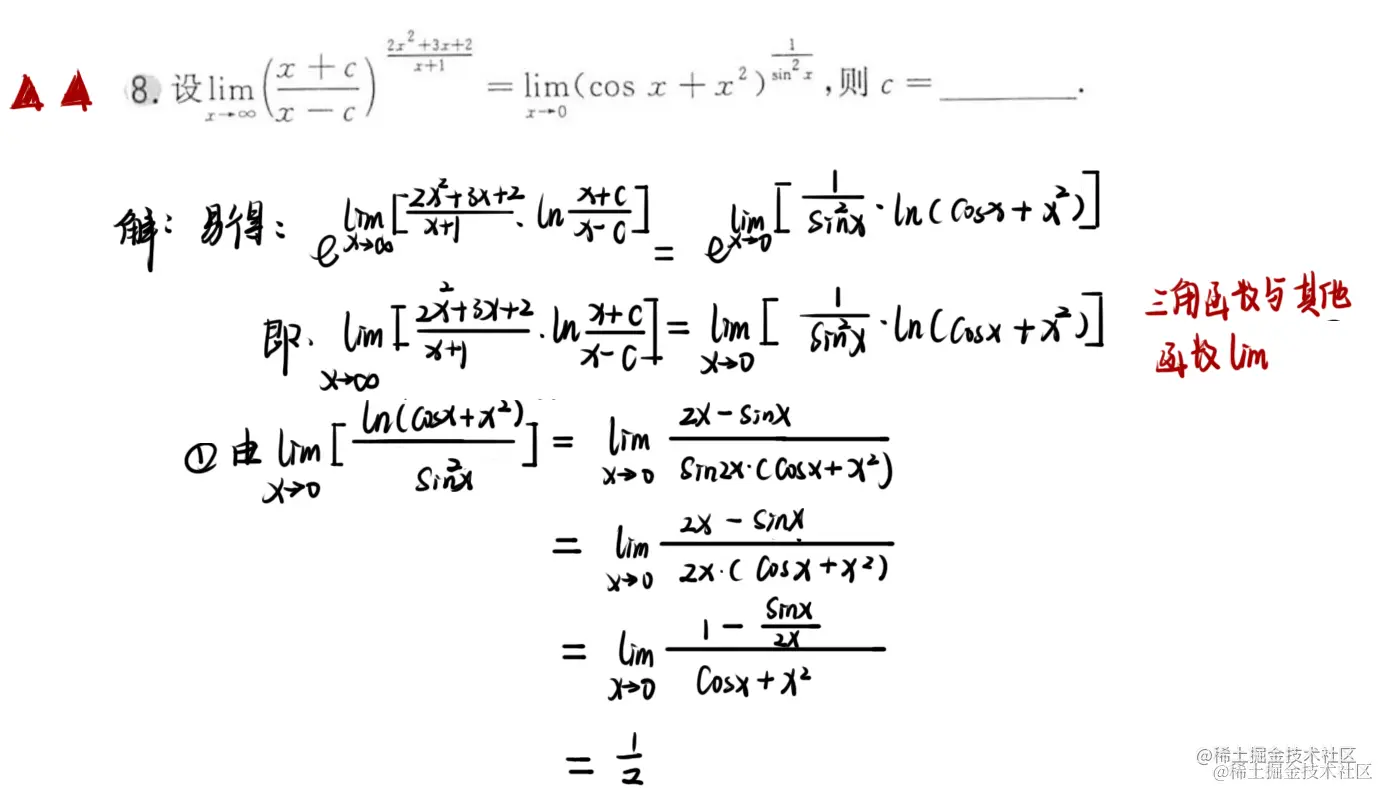 8. 设 lim_{x→∞} ((x+c)/(x-c))^{(2x²+3x+2)/(x+1)} = lim_{x→0} (cos x + x²)^{1/sin²x}, 则 c = ________.
解: 易得: e^{lim_{x→∞} [(2x²+3x+2)/(x+1) · ln (x+c)/(x-c)]} = e^{lim_{x→0} [1/sin²x · ln(cosx+x²)]}
即. lim_{x→∞} [(2x²+3x+2)/(x+1) · ln (x+c)/(x-c)] = lim_{x→0} [1/sin²x · ln(cosx+x²)]
三角函数与其他
函数lim
① 由 lim_{x→0} [ln(cosx+x²)/sin²x] = lim_{x→0} (2x-sinx)/(sin2x·(cosx+x²))
= lim_{x→0} (2x-sinx)/(2x·(cosx+x²))
= lim_{x→0} (1 - sinx/2x)/(cosx+x²)
= 1/2
@稀土掘金技术社区
@稀土掘金技术社区